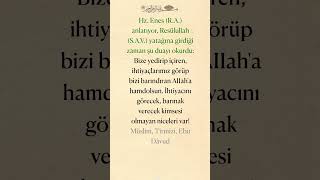 Hz. Enes (R.A.)
anlatıyor, Resûlullah
(S.A.V.) yatağına girdiği
zaman şu duayı okurdu:
Bize yedirip içiren,
ihtiyaçlarımız görüp
bizi barındıran Allah'a
hamdolsun. İhtiyacını
görecek, barınak
verecek kimsesi
olmayan niceleri var!
Müslim, Tirmizi, Ebu
Dâvud